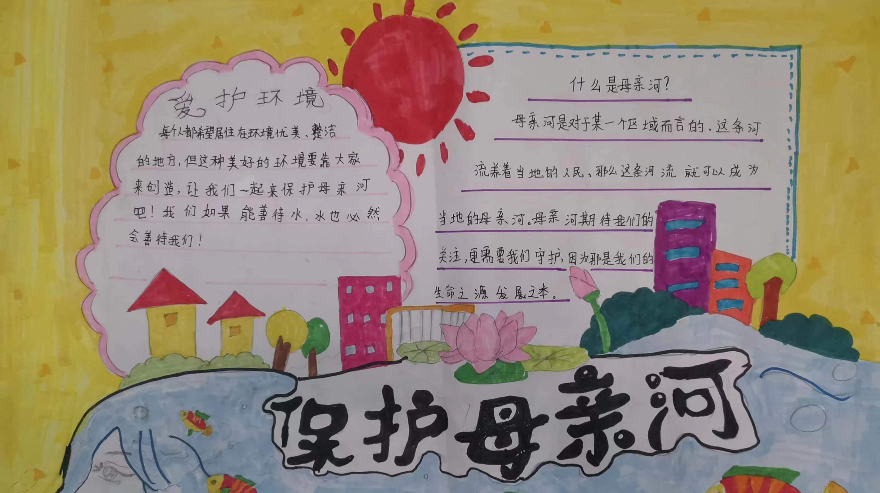 爱护环境
每个人都希望居住在环境优美、整洁
的地方,但这种美好的环境要靠大家
来创造,让我们一起来保护母亲河
吧!我们如果能善待水,水也必然
会善待我们!
什么是母亲河?
母亲河是对于某一个区域而言的,这条河
流养着当地的人民,那么这条河流就可以成为
当地的母亲河。母亲河期待我们的
关注,更需要我们守护,因为那是我们的
生命之源发展之本。
保护母亲河